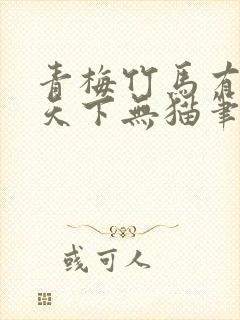 青梅竹馬有
天下無猫筆
或可人